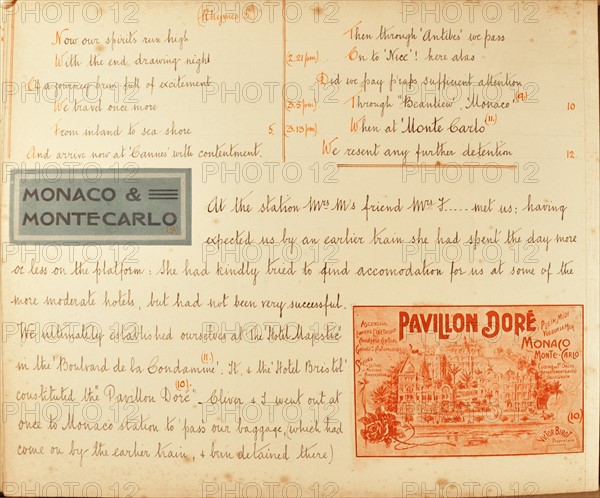 (Rhymes 5)
Now our spirits run high
With the end drawing nigh
Of a journey brim full of excitement
We travel once more
From inland to sea shore 5
And arrive now at 'Cannes' with contentment.
Then through 'Antibes' we pass
(2.21pm) On to 'Nice'! here alas
Did we pay p'raps sufficient attention
(3.5pm) Through "Beaulieu", Monaco" (9.) 10
(3.13pm) When at 'Monte Carlo' (11.)
We resent any further detention 12.
MONACO &
MONTE-CARLO
At the station Mrs M's friend Mrs F..... met us: having
expected us by an earlier train she had spent the day more
or less on the platform: She had kindly tried to find accomodation for us at some of the
more moderate hotels, but had not been very successful.
We ultimately established ourselves at the 'Hotel Majestic'
in the 'Boulvard de la Condamine' (11.). It, & the 'Hotel Bristol'
constituted the 'Pavillon Doré' (10). Oliver & I went out at
once to Monaco station to 'pass' our baggage, (which had
come on by the earlier train, & bin detained there)
PAVILLON DORÉ
ASCENSEUR
PLEIN MIDI
VUE SUR LA MER
MONACO
MONTE-CARLO
(10)
VICTOR BIROT